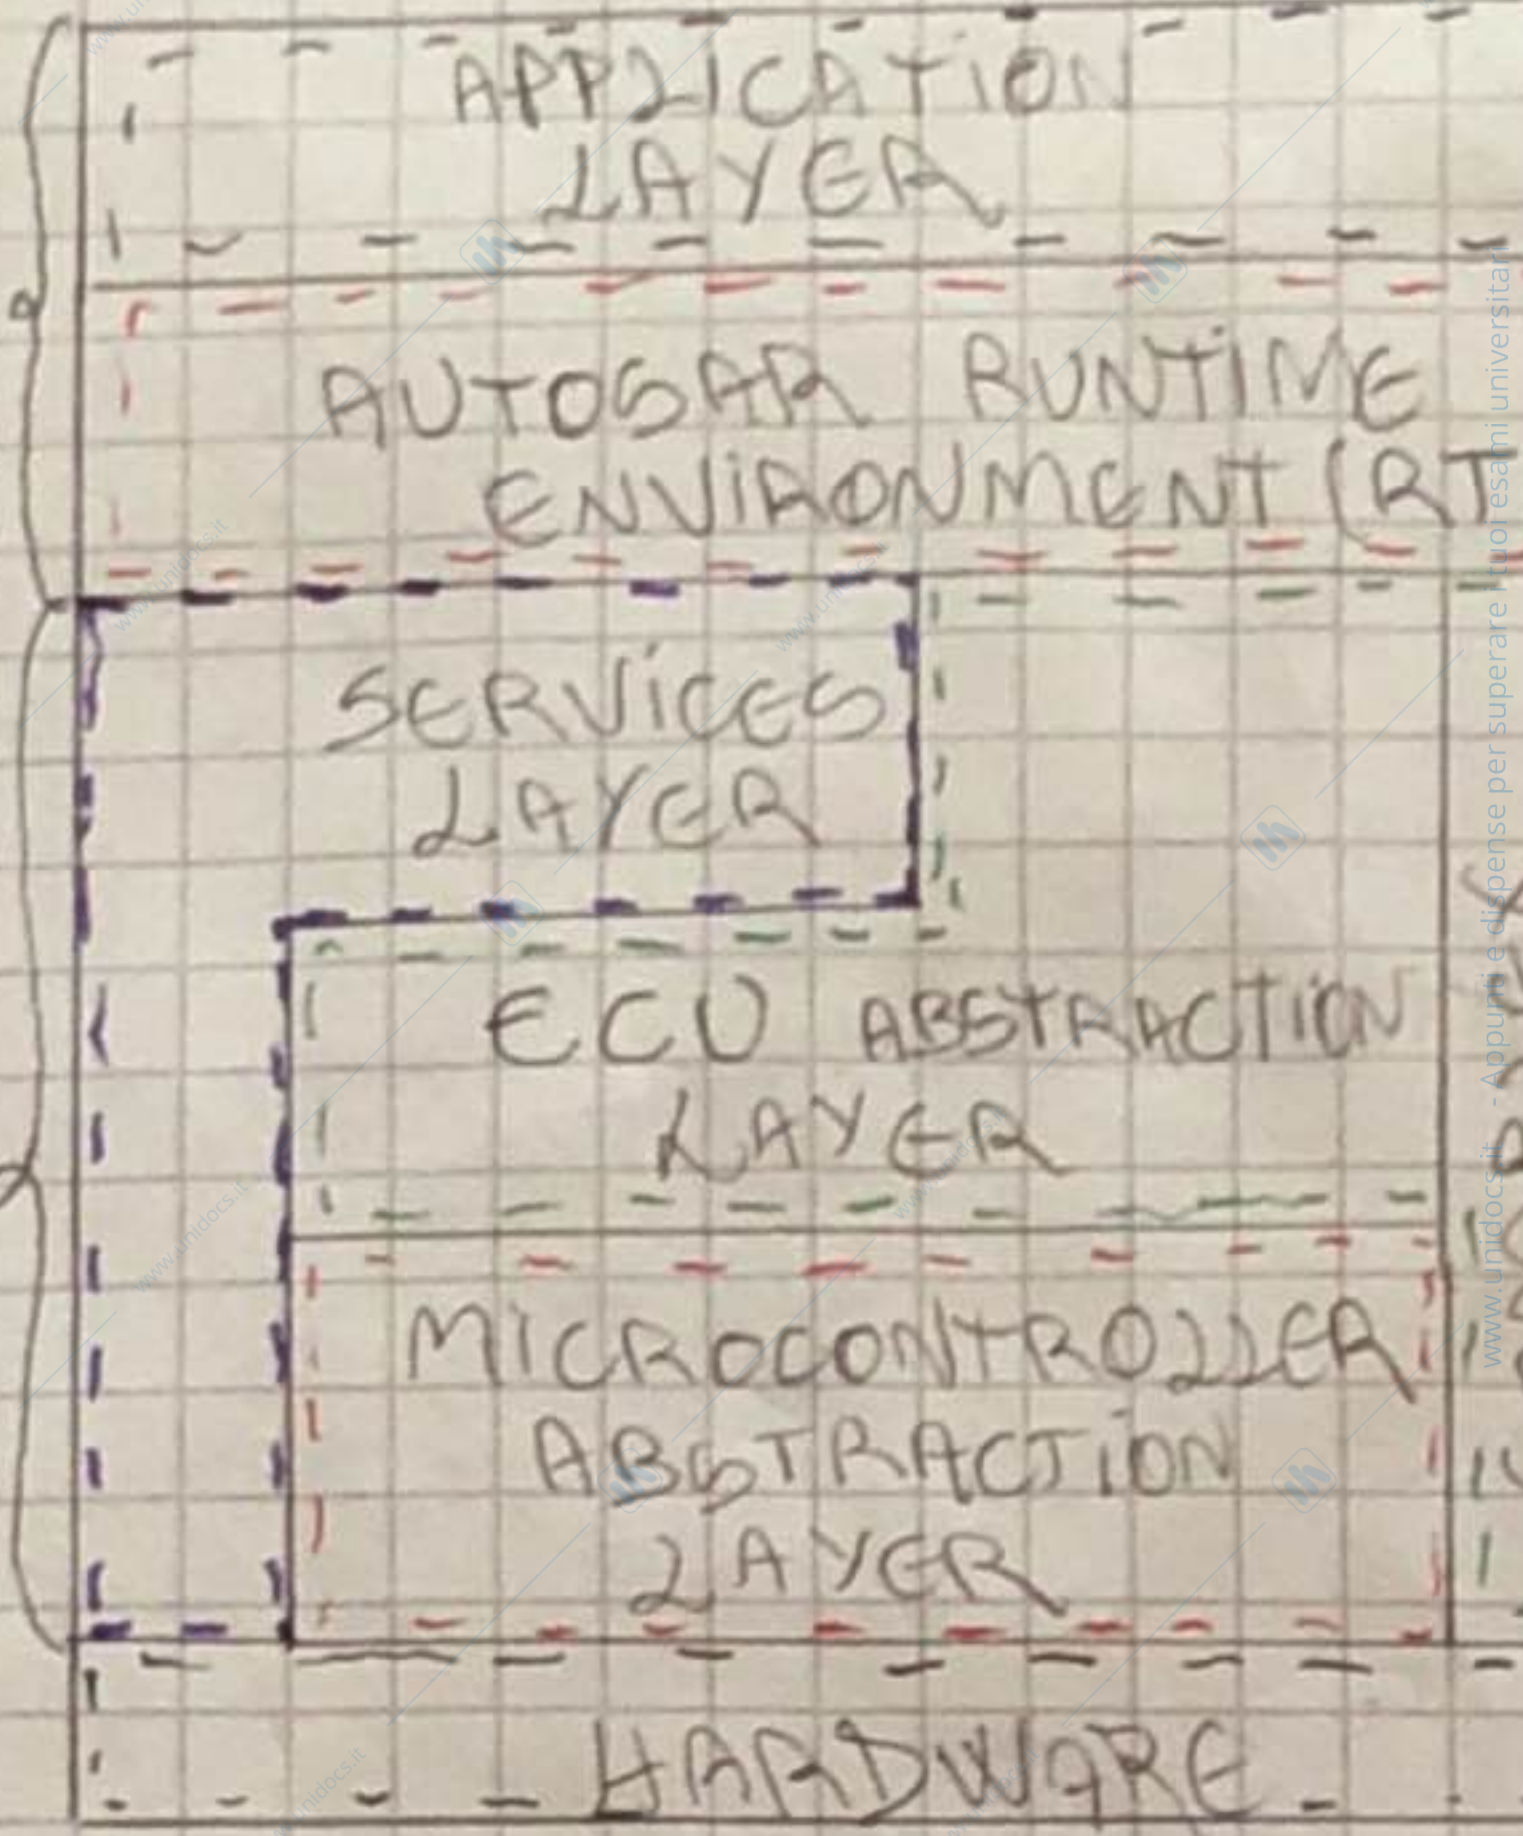 APPLICATION
LAYER
AUTOSAR RUNTIME
ENVIRONMENT (RT
SERVICES
LAYER
ECU ABSTRACTION
LAYER
MICROCONTROLLER
ABSTRACTION
LAYER
HARDWARE
www.unidocs.it - Appunti e dispense per superare i tuoi esami universitari